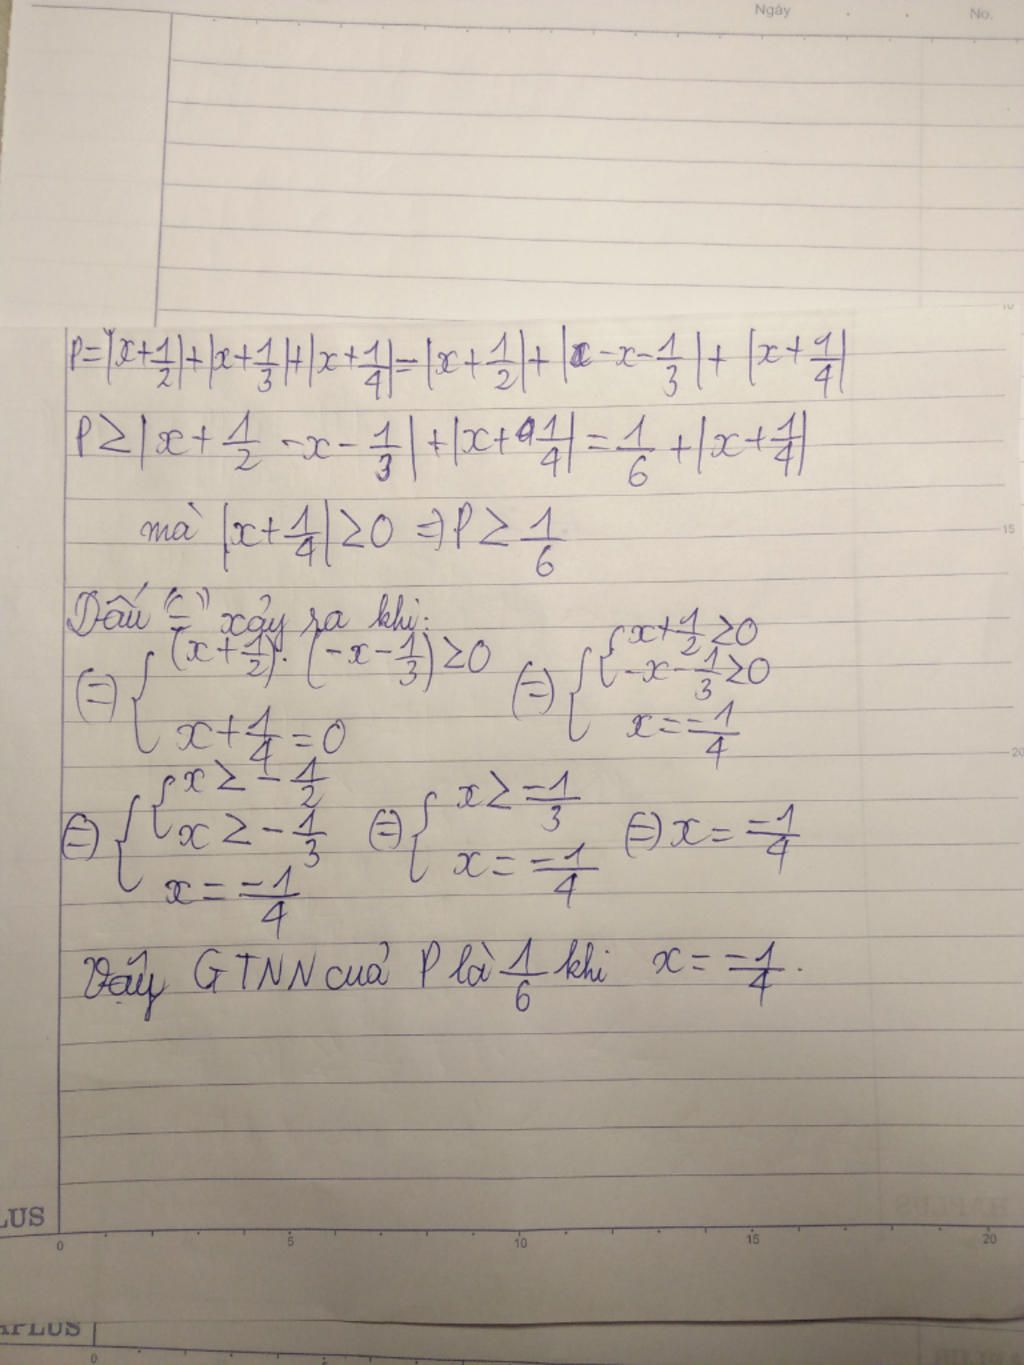 Ngày No.
P=|x+1/2|+|x+1/3|+|x+1/4|=|x+1/2|+|-x-1/3|+|x+1/4|
P≥|x+1/2-x-1/3|+|x+1/4|=1/6+|x+1/4|
mà |x+1/4|≥0 ⇒P≥1/6
Dấu "=" xảy ra khi:
⇔{(x+1/2).(-x-1/3)≥0 ; x+1/4=0 ⇔{{x+1/2≥0 ; -x-1/3≥0 ; x=-1/4
⇔{{x≥-1/2 ; x≥-1/3 ; x=-1/4 ⇔{x≥-1/3 ; x=-1/4 ⇔x=-1/4
Vậy GTNN cuả P là 1/6 khi x=-1/4.
10
15
20
LUS
0 5 10 15 20
APLUS
0